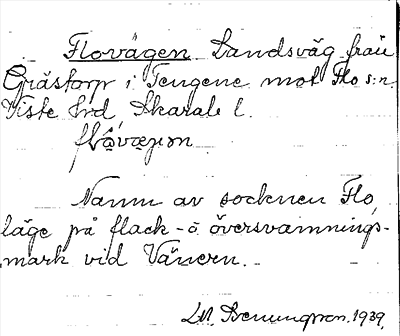 Flovägen Landsväg från
Grästorp i Tengene mot Flo s:n.
Viste hrd, Skarab. l.
flòvæ̀gen
Namn av socknen Flo,
läge på flack- o översvämnings-
mark vid Vänern.
Svenungsson. 1939.